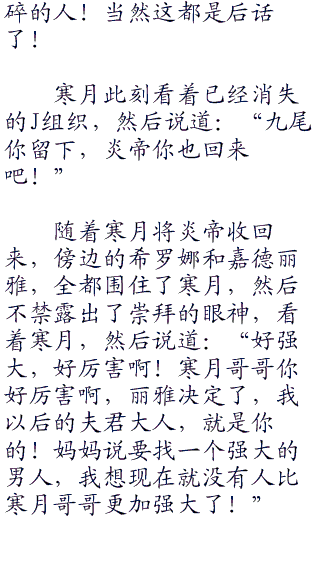 碎的人！当然这都是后话
了！
寒月此刻看着已经消失
的J组织，然后说道：“九尾
你留下，炎帝你也回来
吧！”
随着寒月将炎帝收回
来，傍边的希罗娜和嘉德丽
雅，全都围住了寒月，然后
不禁露出了崇拜的眼神，看
着寒月，然后说道：“好强
大，好厉害啊！寒月哥哥你
好厉害啊，丽雅决定了，我
以后的夫君大人，就是你
的！妈妈说要找一个强大的
男人，我想现在就没有人比
寒月哥哥更加强大了！”